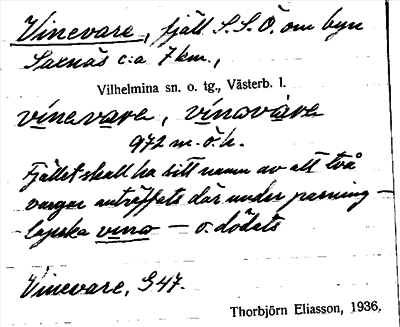 Vinevare, fjäll S.S.Ö. om byn
Saxnäs c:a 7 km.,
Vilhelmina sn. o. tg., Västerb. l.
vinevare, vinováre
972 m. ö. h.
Fjället skall ha sitt namn av att två
vargar anträffats där under parning –
lapska vino – o. dödats
Vinevare, G 47.
Thorbjörn Eliasson, 1936.